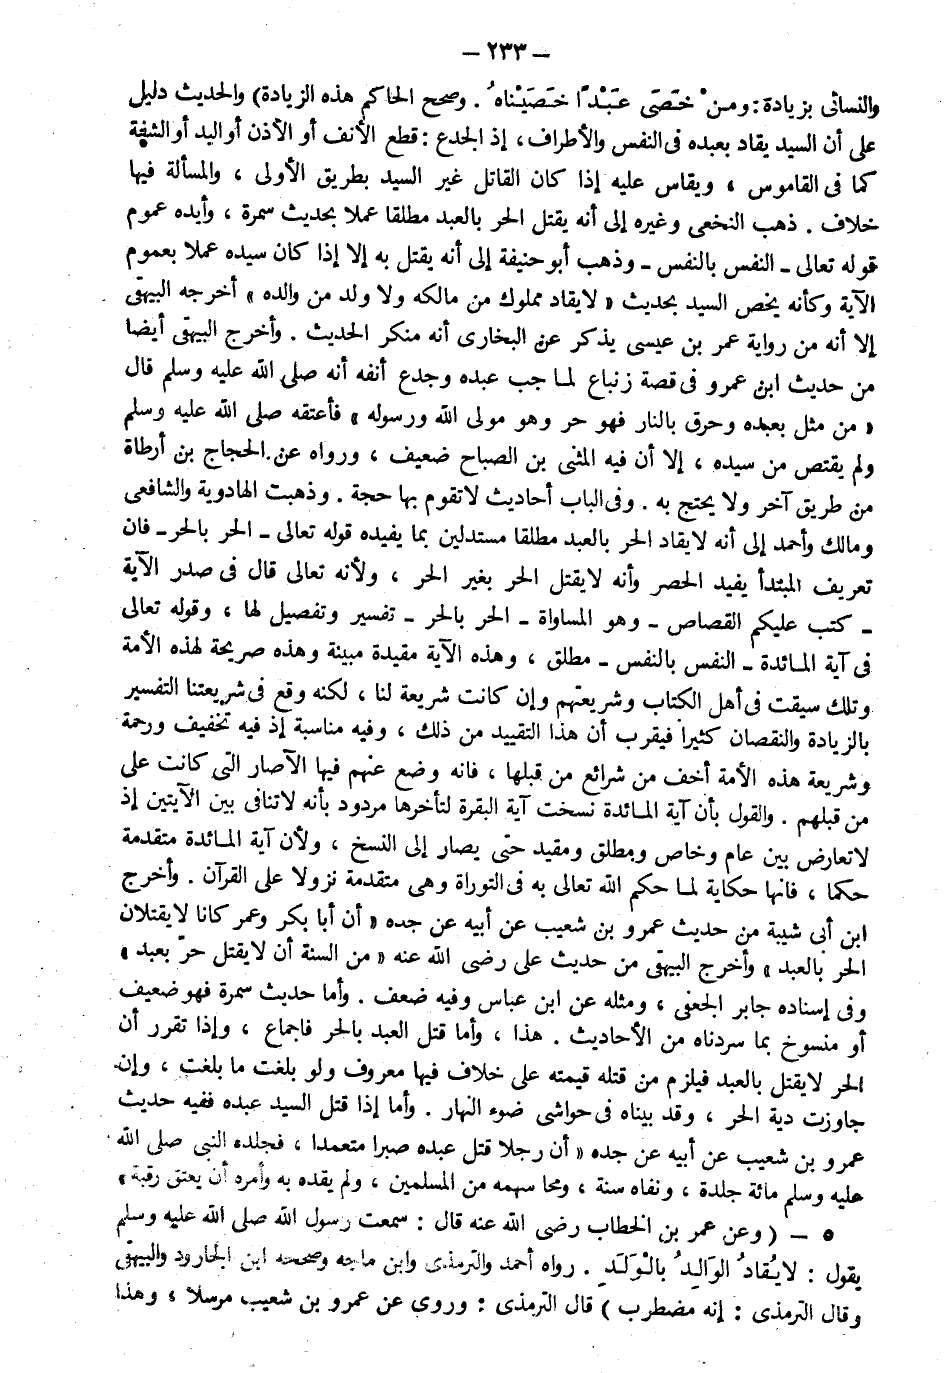 – ٢٣٣ –
والنسائى بزيادة : ومنْ خَصَى عَبْدًا خَصَيْناهُ . وصحح الحاكم هذه الزيادة) والحديث دليل
على أن السيد يقاد بعبده فى النفس والأطراف، إذ الجدع : قطع الأنف أو الأذن أو اليد أو الشفة
كما فى القاموس ، ويقاس عليه إذا كان القاتل غير السيد بطريق الأولى ، والمسألة فيها
خلاف . ذهب النخعى وغيره إلى أنه يقتل الحر بالعبد مطلقا عملا بحديث سمرة ، وأيده عموم
قوله تعالى ـ النفس بالنفس ـ وذهب أبو حنيفة إلى أنه يقتل به إلا إذا كان سيده عملا بعموم
الآية وكأنه يخص السيد بحديث « لايقاد مملوك من مالكه ولا ولد من والده » أخرجه البيهقى
إلا أنه من رواية عمر بن عيسى يذكر عن البخارى أنه منكر الحديث . وأخرج البيهقى أيضا
من حديث ابن عمرو فى قصة زنباع لما جب عبده وجدع أنفه أنه صلى الله عليه وسلم قال
« من مثل بعبده وحرق بالنار فهو حر وهو مولى الله ورسوله » فأعتقه صلى الله عليه وسلم
ولم يقتص من سيده ، إلا أن فيه المثنى بن الصباح ضعيف ، ورواه عن الحجاج بن أرطاة
من طريق آخر ولا يحتج به . وفى الباب أحاديث لاتقوم بها حجة . وذهبت الهادوية والشافعى
ومالك وأحمد إلى أنه لايقاد الحر بالعبد مطلقا مستدلين بما يفيده قوله تعالى ـ الحر بالحر ـ فان
تعريف المبتدأ يفيد الحصر وأنه لايقتل الحر بغير الحر ، ولأنه تعالى قال فى صدر الآية
ـ كتب عليكم القصاص ـ وهو المساواة ـ الحر بالحر ـ تفسير وتفصيل لها ، وقوله تعالى
فى آية المائدة ـ النفس بالنفس ـ مطلق ، وهذه الآية مقيدة مبينة وهذه صريحة لهذه الأمة
وتلك سيقت فى أهل الكتاب وشريعتهم وإن كانت شريعة لنا ، لكنه وقع فى شريعتنا التفسير
بالزيادة والنقصان كثيرا فيقرب أن هذا التقييد من ذلك ، وفيه مناسبة إذ فيه تخفيف ورحمة
وشريعة هذه الأمة أخف من شرائع من قبلها ، فانه وضع عنهم فيها الآصار التى كانت على
من قبلهم . والقول بأن آية المائدة نسخت آية البقرة لتأخرها مردود بأنه لاتنافى بين الآيتين إذ
لاتعارض بين عام وخاص ومطلق ومقيد حتى يصار إلى النسخ ، ولأن آية المائدة متقدمة
حكما ، فانها حكاية لما حكم الله تعالى به فى التوراة وهى متقدمة نزولا على القرآن . وأخرج
ابن أبى شيبة من حديث عمرو بن شعيب عن أبيه عن جده « أن أبا بكر وعمر كانا لايقتلان
الحر بالعبد » وأخرج البيهقى من حديث على رضى الله عنه « من السنة أن لايقتل حرّ بعبد »
وفى إسناده جابر الجعفى ، ومثله عن ابن عباس وفيه ضعف . وأما حديث سمرة فهو ضعيف
أو منسوخ بما سردناه من الأحاديث . هذا ، وأما قتل العبد بالحر فاجماع ، وإذا تقرر أن
الحر لايقتل بالعبد فيلزم من قتله قيمته على خلاف فيها معروف ولو بلغت ما بلغت ، وإن
جاوزت دية الحر ، وقد بيناه فى حواشى ضوء النهار . وأما إذا قتل السيد عبده ففيه حديث
عمرو بن شعيب عن أبيه عن جده « أن رجلا قتل عبده صبرا متعمدا ، فجلده النبى صلى الله
عليه وسلم مائة جلدة ، ونفاه سنة ، ومحا سهمه من المسلمين ، ولم يقده به وأمره أن يعتق رقبة »
٥ – ( وعن عمر بن الخطاب رضى الله عنه قال : سمعت رسول الله صلى الله عليه وسلم
يقول : لايُقادُ الوَالِدُ بالْوَلَدِ . رواه أحمد والترمذى وابن ماجه وصححه ابن الجارود والبيهقى
وقال الترمذى : إنه مضطرب ) قال الترمذى : وروى عن عمرو بن شعيب مرسلا ، وهذا